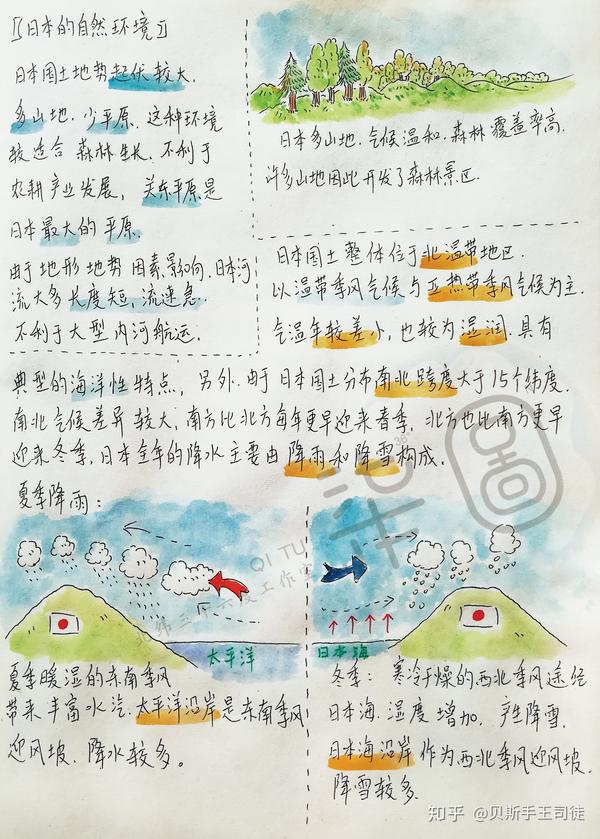 〖日本的自然环境〗
日本国土地势起伏较大,
多山地.少平原.这种环境
较适合森林生长.不利于
农耕产业发展,关东平原是
日本最大的平原.
由于地形地势因素影响.日本河
流大多长度短,流速急.
不利于大型内河航运.
日本多山地.气候温和.森林覆盖率高.
许多山地因此开发了森林景区.
日本国土整体位于北温带地区.
以温带季风气候与亚热带季风气候为主.
气温年较差小,也较为湿润.具有
典型的海洋性特点,另外.由于日本国土分布南北跨度大于15个纬度.
南北气候差异较大,南方比北方每年更早迎来春季,北方也比南方更早
迎来冬季,日本全年的降水主要由降雨和降雪构成.
夏季降雨:
太平洋
夏季暖湿的东南季风
带来丰富水汽.太平洋沿岸是东南季风
迎风坡.降水较多。
日本海
冬季:寒冷干燥的西北季风途经
日本海.湿度增加.产生降雪.
日本海沿岸作为西北季风迎风坡.
降雪较多.
柒圖
QI TU
北纬三十六度工作室
知乎 @贝斯手王司徒